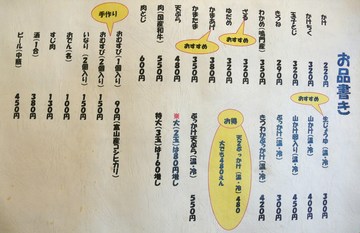 お品書き
かけ 220円
かけちく 320円
玉子とじ 320円
きつね 320円
わかめ(鳴門産) 350円
おすすめ
ざる 320円
ゆだめ 320円
おすすめ
かまあげ 320円
かまたま 350円
天ぷら 480円
肉(国産和牛) 550円
肉とじ 600円
おすすめ
生じょうゆ(温・冷) 300円
山かけ(温・冷) 400円
山かけ卵入り(温・冷) 450円
ぶっかけ(温・冷) 320円
きつねぶっかけ(温・冷) 420円
お得
天玉ぶっかけ(温・冷) 480
大でも480えん
ぶっかけ天ぷら(温・冷) 550円
※大(2玉)は80円増し
特大(3玉)は160増し
手作り
おむすび(1個入り) 90円(富山産コシヒカリ)
おむすび(2個入り) 150円
いなり(2個入り) 150円
おでん(各) 100円
すじ肉 130円
酒(一合) 380円
ビール(中瓶) 450円